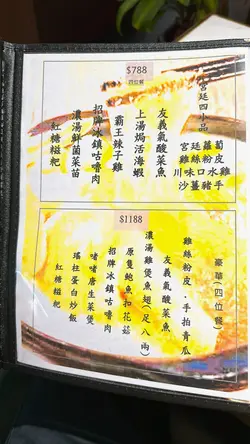 $788
四位餐
宮廷四小品
蘿粉水豬
廷絲口薑
宮雞味
川沙
友義氣酸菜魚
上湯焗活海蝦
霸王辣子雞
招牌冰鎮咕嚕肉
濃湯鮮菌菜苗
紅糖糍粑
$1188
豪華(四位餐)
雞絲粉皮．手拍青瓜
友義氣酸菜魚
濃湯雞煲魚翅(足八兩)
原隻鮑魚扣花菇
招牌冰鎮咕嚕肉
啫啫唐生菜煲
瑤柱蛋白炒飯
紅糖糍粑